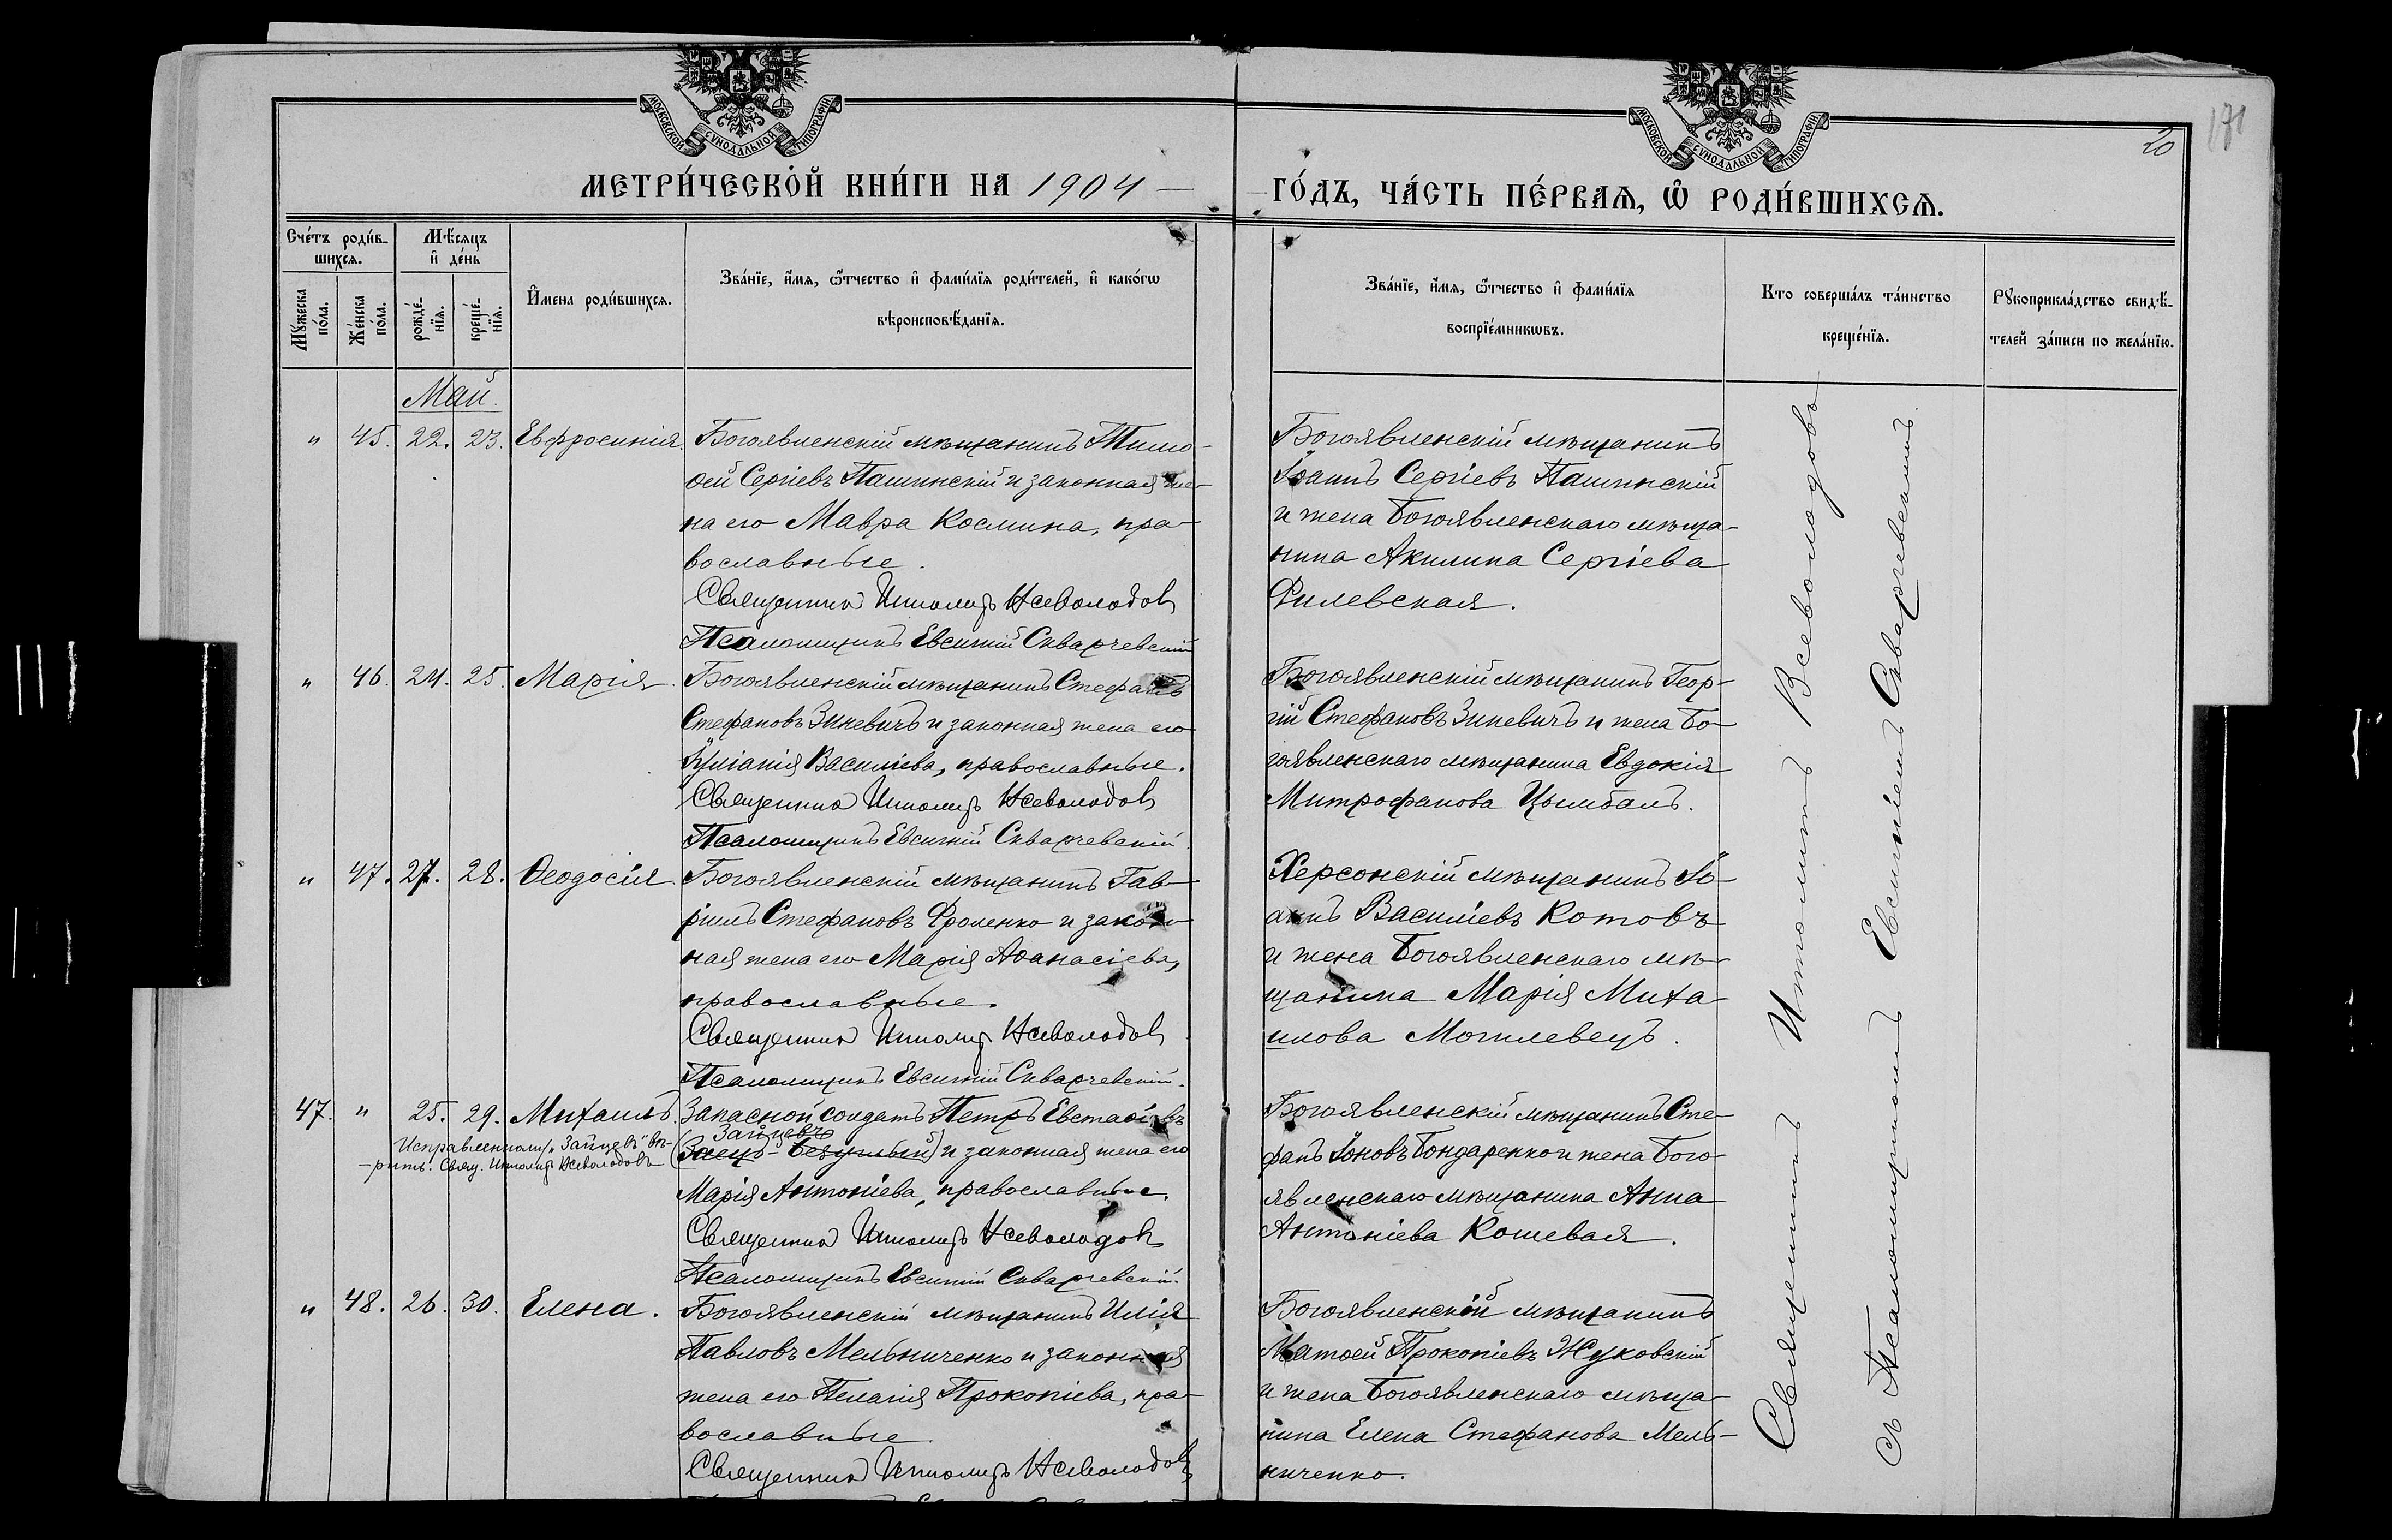 МОСКОВСКОЙ СѴНОДАЛЬНОЙ ТИПОГРАФІИ
МОСКОВСКОЙ СѴНОДАЛЬНОЙ ТИПОГРАФІИ
171
20
МЕТРИ́ЧЕСКОЙ КНИ́ГИ НА 1904 —
ГО́ДЪ, ЧА́СТЬ ПЕ́РВАѦ, Ѡ҆ РОДИ́ВШИХСѦ.
Сче́тъ роди́в-
шихсѧ.
Мѣ́сѧцъ
и҆ де́нь
Мꙋ́жеска
по́ла.
Же́нска
по́ла.
рожде́-
нїѧ.
креще́-
нїѧ.
И҆мена роди́вшихсѧ.
Зва́нїе, и҆́мѧ, ѻ҆́тчество и҆ фами́лїѧ роди́телей, и҆ како́гѡ
вѣроисповѣ́данїѧ.
Зва́нїе, и҆́мѧ, ѻ҆́тчество и҆ фами́лїѧ
воспрїе́мникѡвъ.
Кто соверша́лъ та́инство
креще́нїѧ.
Рꙋкоприкла́дство свидѣ́-
телей за́писи по жела́нїю.
Май.
" 45. 22. 23. Евфросинія.
Богоявленскій мѣщанинъ Тимо-
ѳей Сергіевъ Пашинскій и законная же-
на его Мавра Космина, пра-
вославные.
Священникъ Ипполитъ Всеволодовъ
Псаломщикъ Евсигній Скварчевскій
Богоявленскій мѣщанинъ
Іоаннъ Сергіевъ Пашинскій
и жена Богоявленскаго мѣща-
нина Акилина Сергіева
Филевская.
" 46. 24. 25. Марія.
Богоявленскій мѣщанинъ Стефанъ
Стефановъ Зиневичъ и законная жена его
Іуліанія Василіева, православные.
Священникъ Ипполитъ Всеволодовъ
Псаломщикъ Евсигній Скварчевскій
Богоявленскій мѣщанинъ Геор-
гій Стефановъ Зиневичъ и жена Бо-
гоявленскаго мѣщанина Евдокія
Митрофанова Цымбалъ.
" 47. 27. 28. Ѳеодосія.
Богоявленскій мѣщанинъ Гав-
ріилъ Стефановъ Фроленко и закон-
ная жена его Марія Аѳанасіева,
православные.
Священникъ Ипполитъ Всеволодовъ
Псаломщикъ Евсигній Скварчевскій.
Херсонскій мѣщанинъ Іо-
аннъ Василіевъ Котовъ
и жена Богоявленскаго мѣ-
щанина Марія Миха-
илова Могилевецъ.
47. " 25. 29. Михаилъ.
Исправленному „Зайцевъ" вѣ-
-рить. Свящ. Ипполитъ Всеволодовъ
Запасной солдатъ Петръ Евстаѳіевъ
Зайцевъ
(Заецъ-Безуглый) и законная жена его
Марія Антоніева, православные.
Священникъ Ипполитъ Всеволодовъ
Псаломщикъ Евсигній Скварчевскій.
Богоявленскій мѣщанинъ Сте-
фанъ Іоновъ Бондаренко и жена Бого-
явленскаго мѣщанина Анна
Антоніева Кошевая.
" 48. 26. 30. Елена.
Богоявленскій мѣщанинъ Илія
Павловъ Мельниченко и законная
жена его Пелагія Прокопіева, пра-
вославные.
Священникъ Ипполитъ Всеволодовъ
Богоявленскій мѣщанинъ
Матѳей Прокопіевъ Жуковскій
и жена Богоявленскаго мѣща-
нина Елена Стефанова Мель-
ниченко.
Священникъ Ипполитъ Всеволодовъ
съ Псаломщикомъ Евсигніемъ Скварчевскимъ.